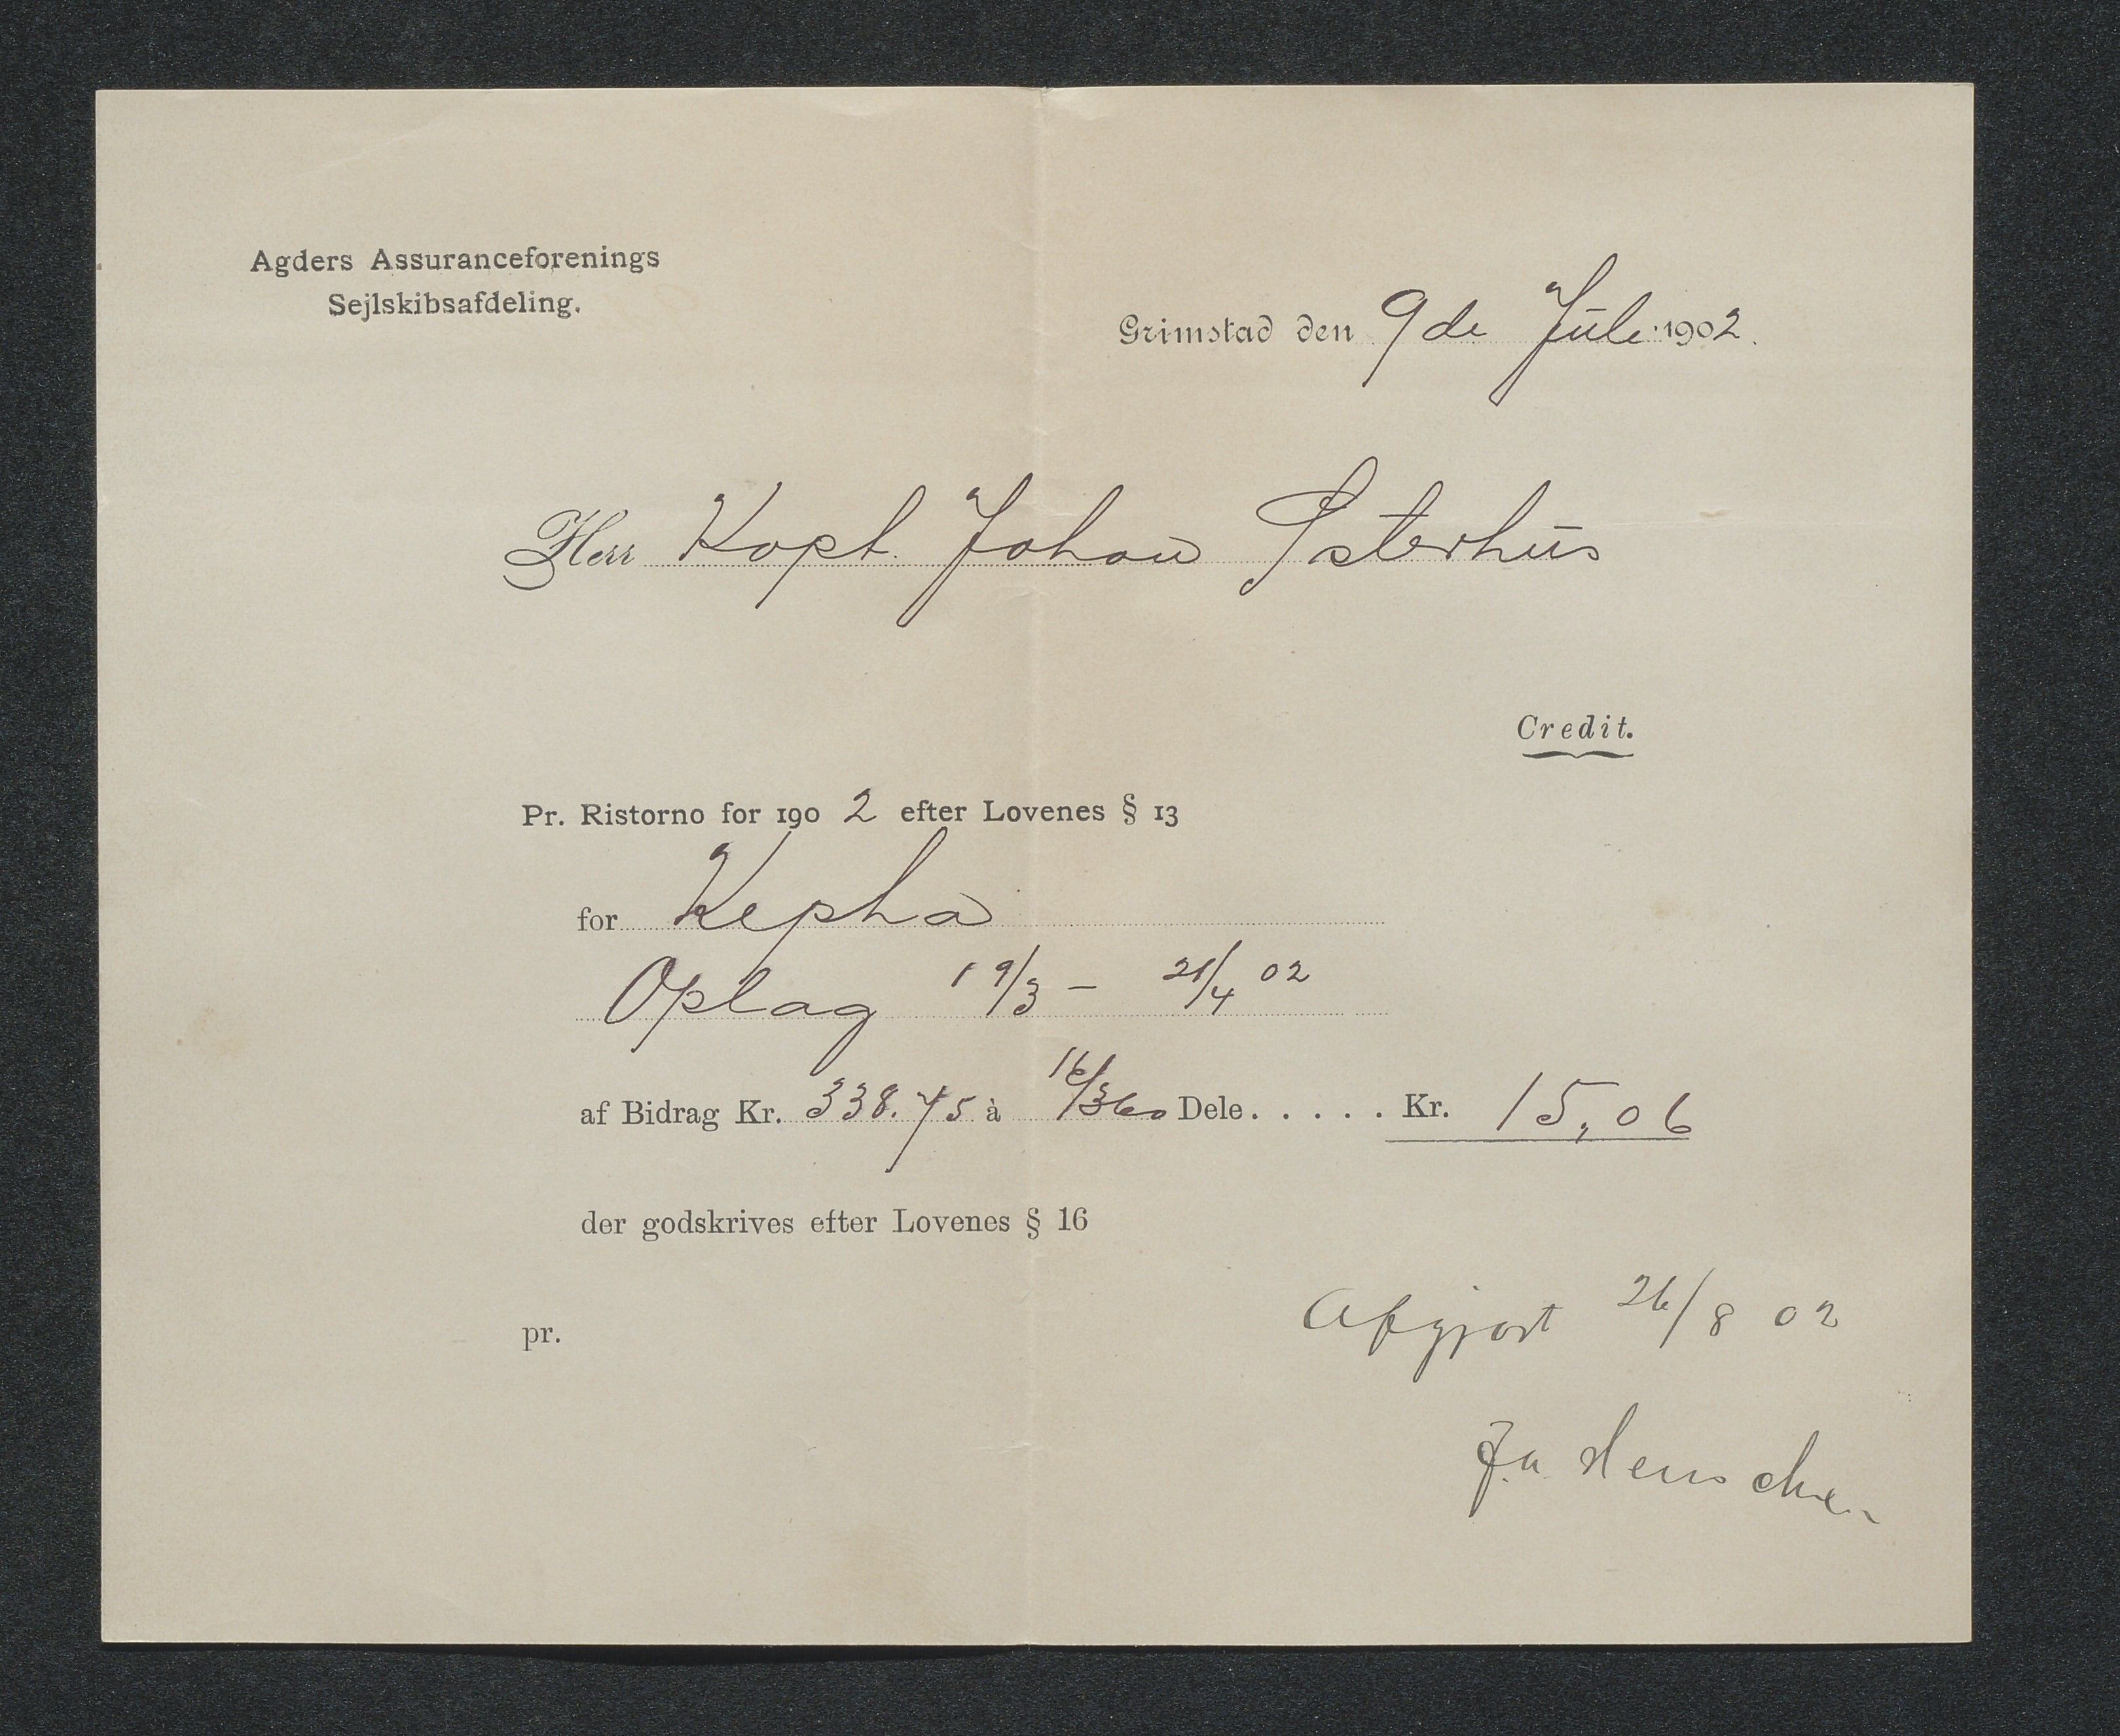 Agders Assuranceforenings
Sejlskibsafdeling.
Grimstad den 9de Juli 1902.
Herr Kapt. Johan Østerhus
Credit.
Pr. Ristorno for 1902 efter Lovenes § 13
for Kepha
Oplag 19/3 – 21/4 02
af Bidrag Kr. 338.75 à 16/360 Dele..... Kr. 15,06
der godskrives efter Lovenes § 16
Afgjort 26/8 02
pr.